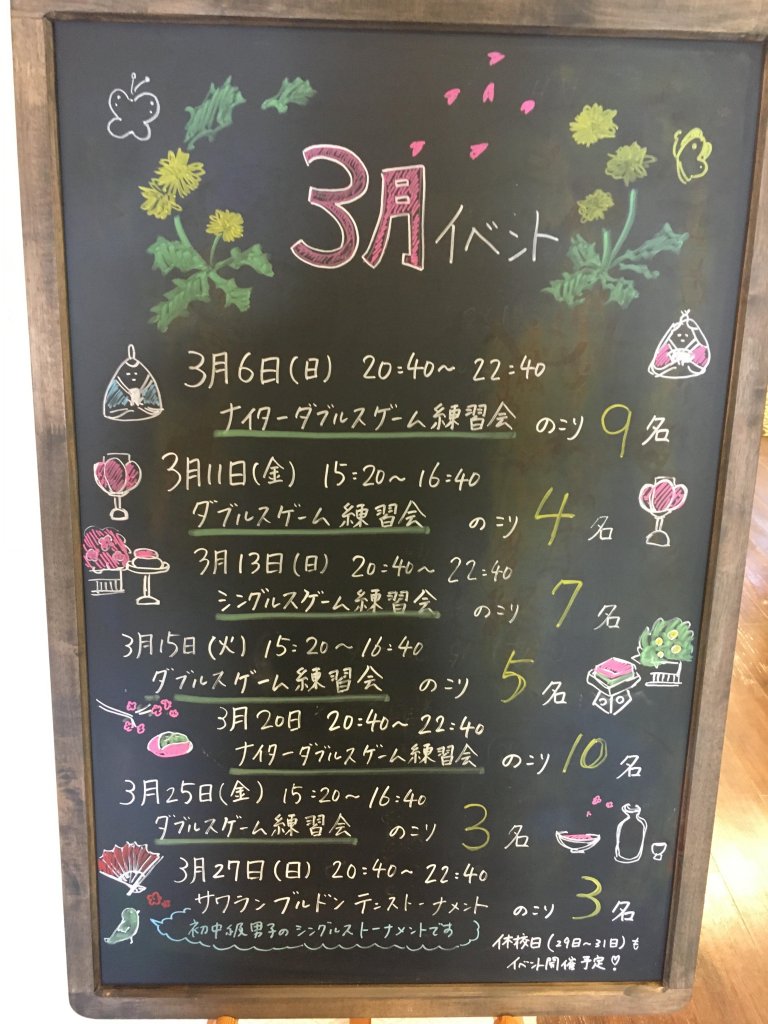 3月イベント
3月6日(日) 20:40~22:40
ナイターダブルスゲーム練習会 のこり 9名
3月11日(金) 15:20~16:40
ダブルスゲーム練習会 のこり 4名
3月13日(日) 20:40~22:40
シングルスゲーム練習会 のこり 7名
3月15日(火) 15:20~16:40
ダブルスゲーム練習会 のこり 5名
3月20日 20:40~22:40
ナイターダブルスゲーム練習会 のこり 10名
3月25日(金) 15:20~16:40
ダブルスゲーム練習会 のこり 3名
3月27日(日) 20:40~22:40
サワラン ブルドン テニストーナメント のこり 3名
初中級男子のシングルストーナメントです
休校日(29日~31日)も
イベント開催予定♡